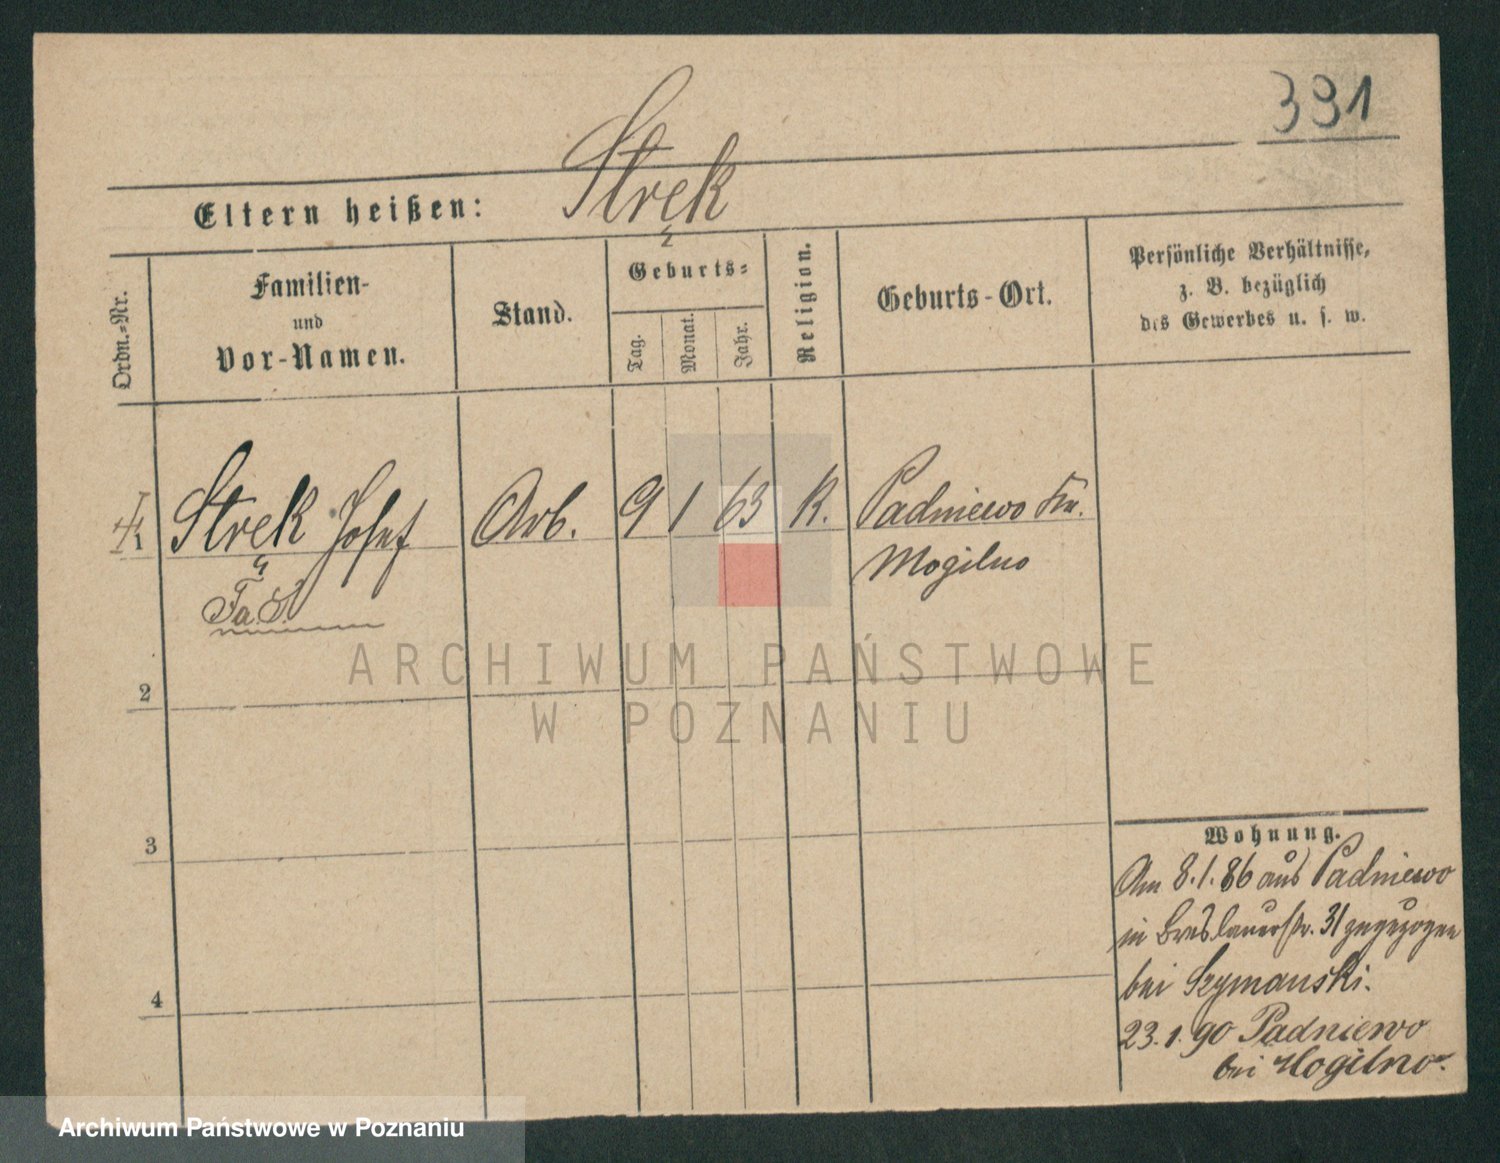 391
Eltern heißen: Stręk
Ordn.-Nr.
Familien-
und
Vor-Namen.
Stand.
Geburts-
Tag.
Monat.
Jahr.
Religion.
Geburts-Ort.
Persönliche Verhältnisse,
z. B. bezüglich
des Gewerbes u. s. w.
1 Stręk Josef Arb. 9 1 63 K. Padniewo Kr.
Mogilno
2
3
4
Wohnung.
Am 8.1.86 aus Padniewo
in Breslauerstr. 31 zugezogen
bei Szymanski.
23.1.90 Padniewo
bei Mogilno.
ARCHIWUM PAŃSTWOWE
W POZNANIU
Archiwum Państwowe w Poznaniu